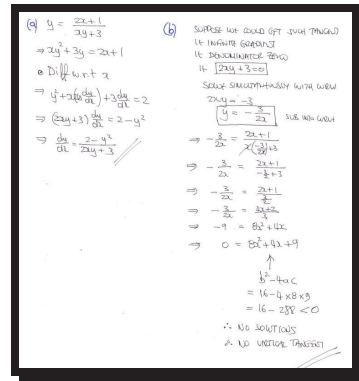 (a) y = 2x+1 / xy+3
⇒ xy²+3y = 2x+1
• Diff w.r.t x
⇒ y²+x(2y dy/dx)+3 dy/dx = 2
⇒ (2xy+3) dy/dx = 2-y²
⇒ dy/dx = 2-y² / 2xy+3
(b) SUPPOSE WE COULD GET SUCH TANGENT
IE INFINITE GRADIENT
IE DENOMINATOR ZERO
IE 2xy+3=0
SOLVE SIMULTANEOUSLY WITH CURVE
2xy = -3
y = -3/2x SUB INTO CURVE
⇒ -3/2x = 2x+1 / x(-3/2x)+3
⇒ -3/2x = 2x+1 / -3/2+3
⇒ -3/2x = 2x+1 / 3/2
⇒ -3/2x = 4x+2 / 3
⇒ -9 = 8x²+4x
⇒ 0 = 8x²+4x+9
↑
b²-4ac
= 16-4×8×9
= 16-288 < 0
∴ NO SOLUTIONS
∴ NO VERTICAL TANGENT